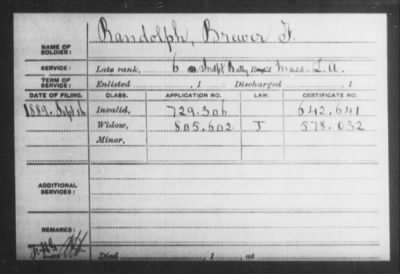 Randolph, Brewer F.
NAME OF SOLDIER:
SERVICE: Late rank, 6 Indpt Batty Mass. L.A.
TERM OF SERVICE: Enlisted , 1 Discharged , 1
DATE OF FILING. CLASS. APPLICATION NO. LAW. CERTIFICATE NO.
1889. Sept 26 Invalid, 729.306 642.641
Widow, 805.602 J 578.032
Minor,
ADDITIONAL SERVICES:
REMARKS:
Died , 1 , at